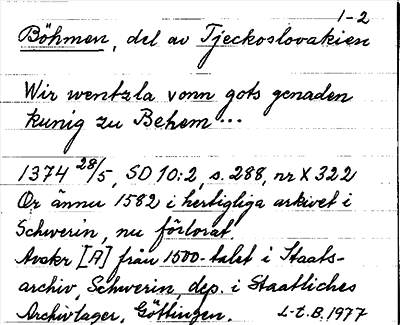 1-2
Böhmen, del av Tjeckoslovakien
Wir wentzla vonn gots genaden
kunig zu Behem...
1374 28/5, SD 10:2, s. 288, nr X 322
Or ännu 1582 i hertigliga arkivet i
Schwerin, nu förlorat.
Avskr [A] från 1500-talet i Staats-
archiv, Schwerin, dep. i Staatliches
Archivlager, Göttingen. L-t. B, 1977